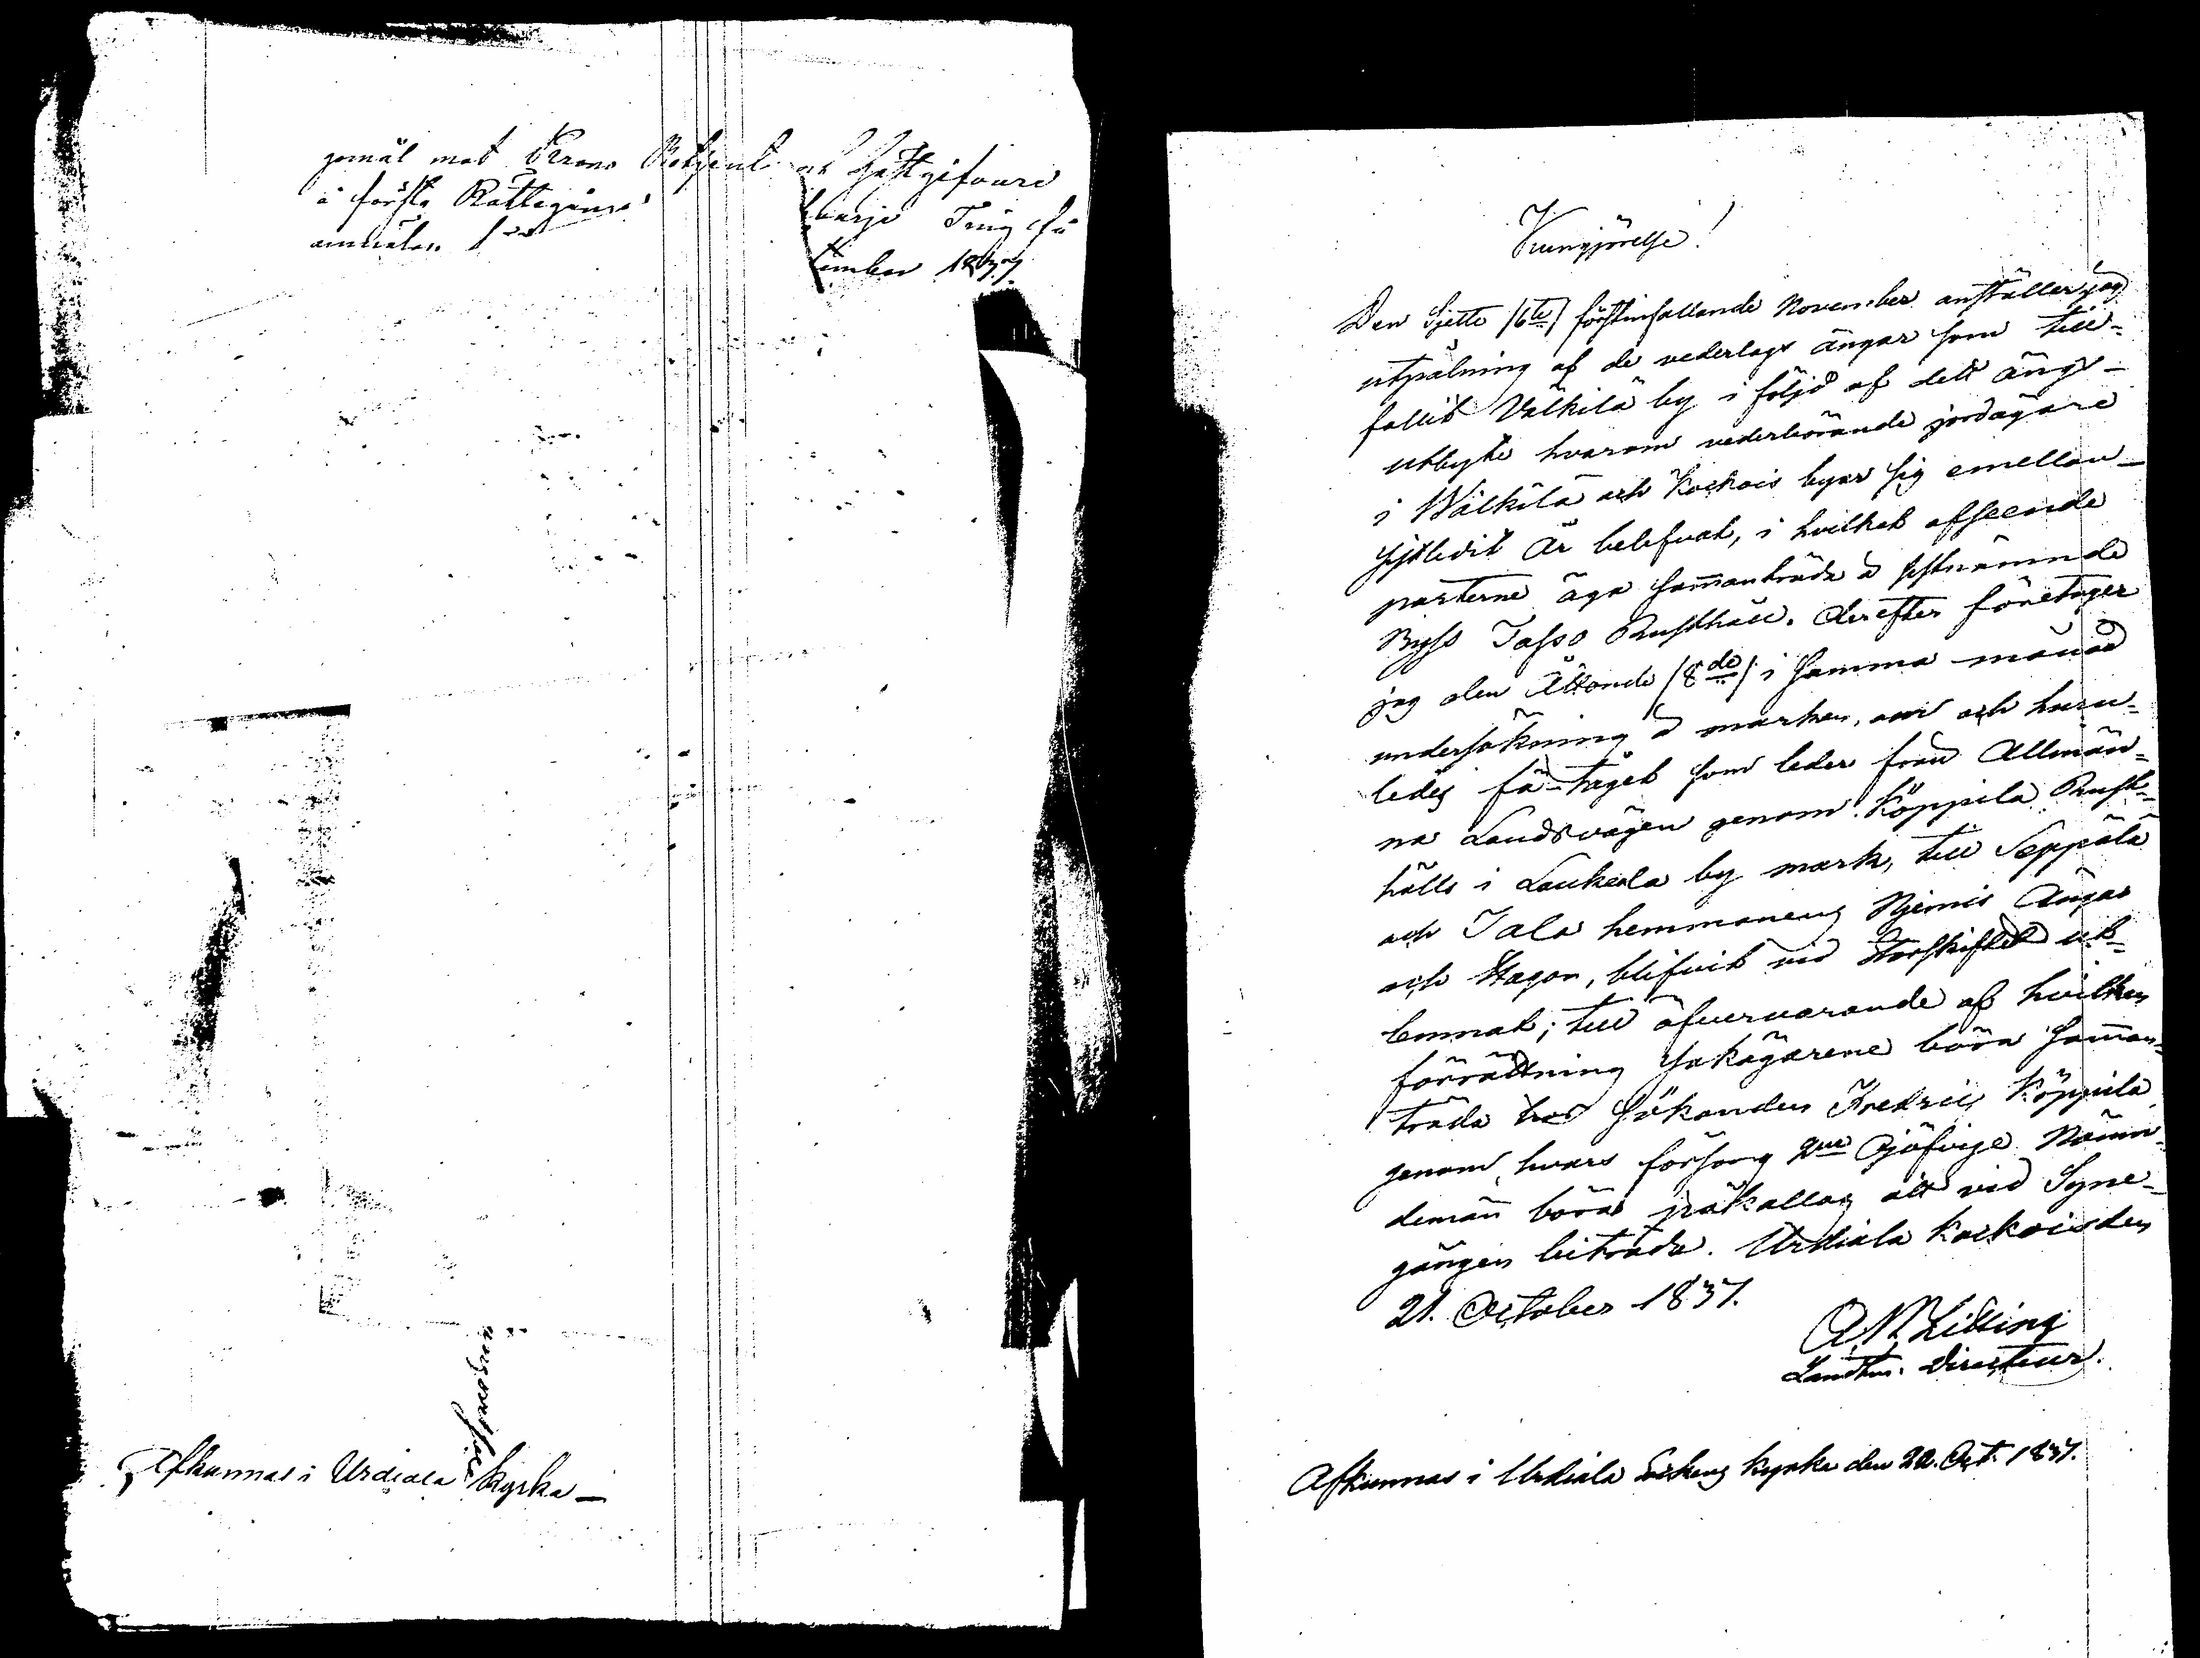 gemäl mot Krono Betjent och Gästgifvare
å första Rättegångs
hvarje Ting få
anmälas
tember 1837.
Afkunnas i Urdiala kyrka —
Kungjörelse!
Den Sjette /6te/ förstinfallande November anställer jag
utpålning af de vederlags ängar som till-
fallit Välkilä by i följd af dett ängs-
utbyte hvarom vederbörande jordägare
i Wälkilä och Kockois byar sig emellan
sistledit År belefvat, i hvilket afseende
parterne äga sam̄anträda å sistnämnde
Bys Jasso Rusthåll. Derefter företager
jag den Åttonde /8de/ i samma månad
undersökning å marken, om och huru-
ledes fä-tåget som leder från Allmän-
na Landsvägen genom Köppilä Rust-
hålls i Laukeela by mark, till Seppälä
och Jala hemmanens Njemis Ängar
och Hagar, blifvit vid Storskiftet ut-
lemnat; till öfvervarande af hvilken
förrättning Sakägarene böra sam̄an-
träda hos Sökanden Fredric Köppilä
genom hvars försorg 2ne Ojäfvige Nämn-
demän̄ böra påkallas att vid Syne-
gången biträda. Urdiala Kockois den
21. October 1837.
Landtm. Directeur.
Afkunnas i Urdiala Sockens kyrka den 22. Oct. 1837.